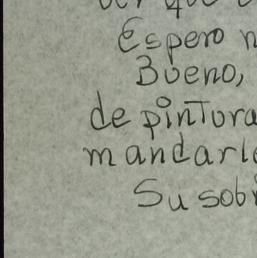 Espero n
Bueno,
de pintura
mandarle
Su sobr